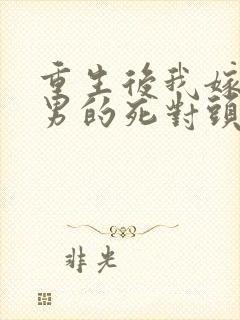 重生後我嫁
男的死對頭
非光